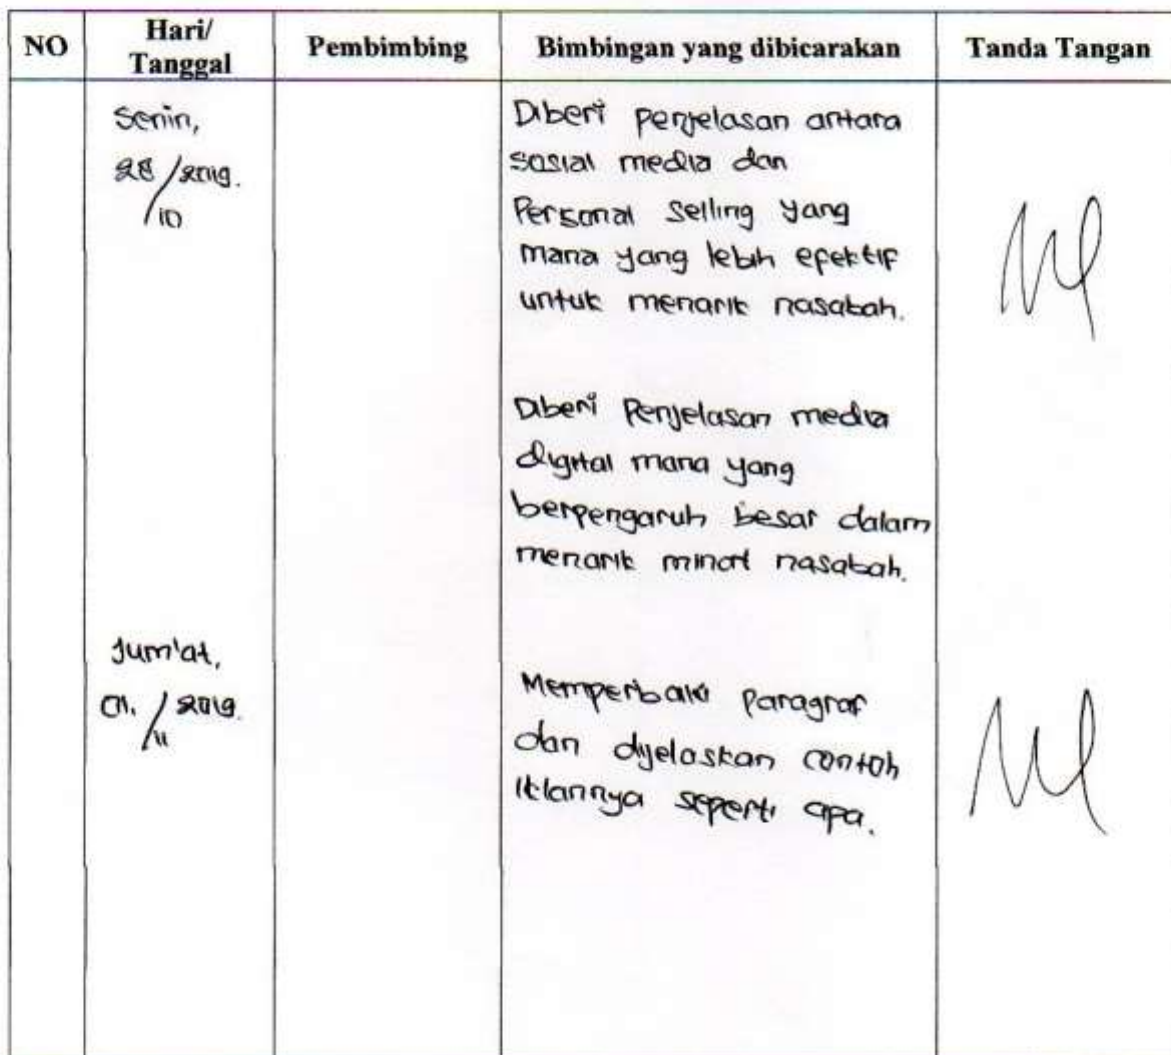 NO
Hari/
Tanggal
Pembimbing
Bimbingan yang dibicarakan
Tanda Tangan
Senin,
28/10 2019.
Diberi penjelasan antara
sosial media dan
Personal selling yang
mana yang lebih efektif
untuk menarik nasabah.
Diberi Penjelasan media
digital mana yang
berpengaruh besar dalam
menarik minat nasabah.
Jum'at,
01./11 2019.
Memperbaiki paragraf
dan dijelaskan contoh
iklannya seperti apa.